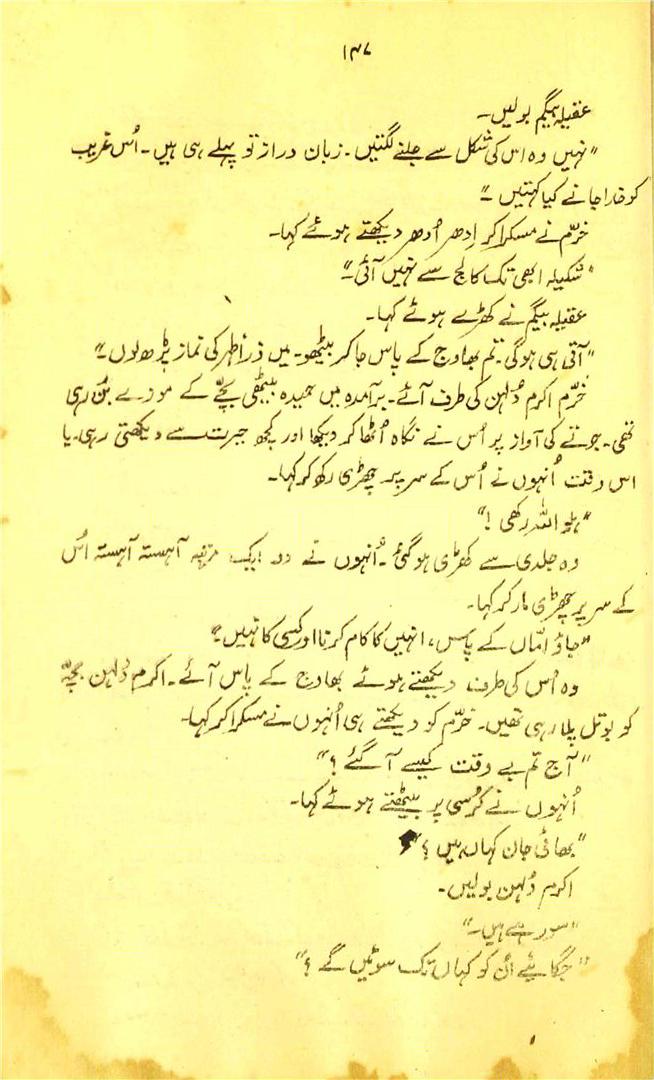 ۱۴۷
عقیلہ بیگم بولیں۔
”نہیں وہ اس کی شکل سے جلنے لگتیں۔ زبان دراز تو پہلے ہی ہیں۔ اُس غریب
کو خدا جانے کیا کہتیں ۔“
خرّم نے مسکرا کر اِدھر اُدھر دیکھتے ہوئے کہا۔
”شکیلہ ابھی تک کالج سے نہیں آئی۔“
عقیلہ بیگم نے کھڑے ہوتے کہا۔
”آتی ہی ہوگی۔ تم بھاوج کے پاس جا کر بیٹھو۔ میں ذرا ظہر کی نماز پڑھ لوں۔“
خرّم اکرم دُلہن کی طرف آئے۔ برآمدہ میں حمیدہ بیٹھی بچّے کے موزے بُن رہی
تھی۔ جوتے کی آواز پر اُس نے نگاہ اُٹھا کر دیکھا اور کچھ حیرت سے دیکھتی رہی۔ یا
اس وقت اُنہوں نے اُس کے سر پر چھڑی رکھ کر کہا۔
”ہلو اللہ رکھی !“
وہ جلدی سے کھڑی ہو گئی۔ اُنہوں نے دو ایک مرتبہ آہستہ آہستہ اُس
کے سر پر چھڑی مار کر کہا۔
”جاؤ امّاں کے پاس، انہیں کا کام کرنا اور کسی کا نہیں؟
وہ اُس کی طرف دیکھتے ہوئے بھاوج کے پاس آئے۔ اکرم دُلہن بچّہ
کو بوتل پلا رہی تھیں۔ خرّم کو دیکھتے ہی اُنہوں نے مسکرا کر کہا۔
”آج تم بے وقت کیسے آ گئے ؟“
اُنہوں نے کُرسی پر بیٹھتے ہوئے کہا۔
”بھائی جان کہاں ہیں ؟“
اکرم دُلہن بولیں۔
”سو رہے ہیں۔“
”جگائیے اُن کو کہاں تک سوئیں گے ؟“